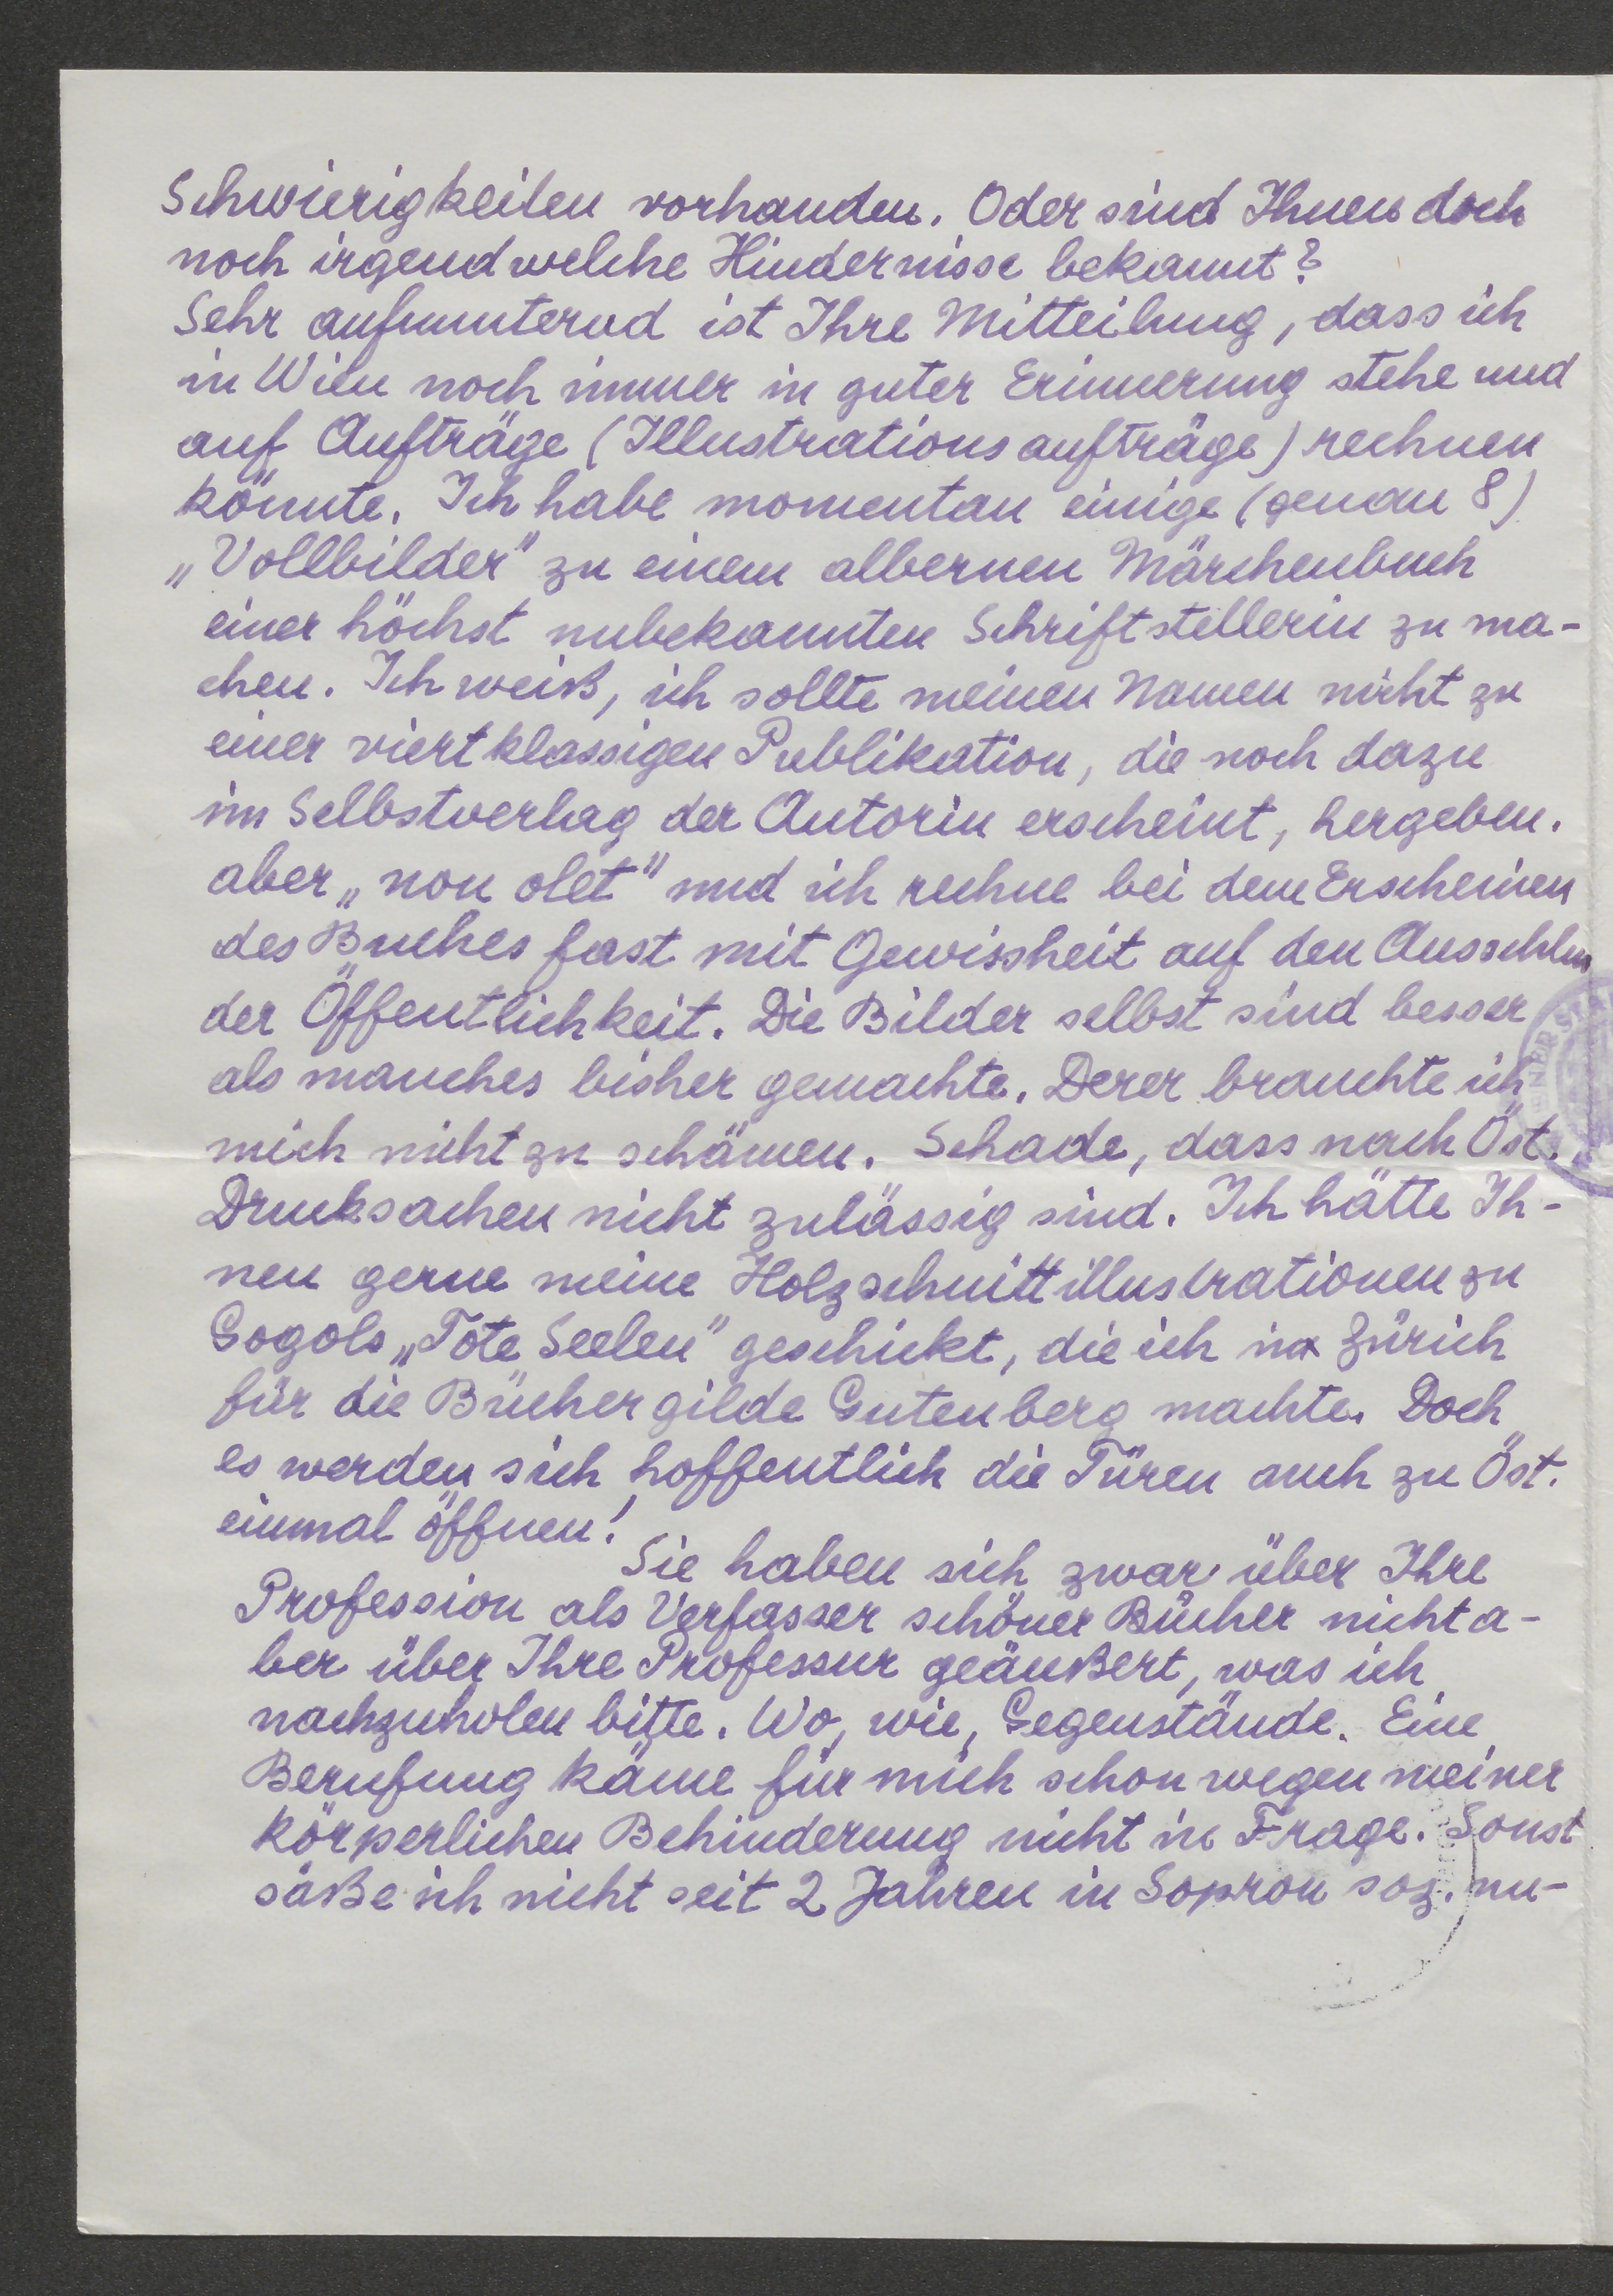 Schwierigkeiten vorhanden. Oder sind Ihnen doch
noch irgendwelche Hindernisse bekannt?
Sehr aufmunternd ist Ihre Mitteilung, dass ich
in Wien noch immer in guter Erinnerung stehe und
auf Aufträge (Illustrationsaufträge) rechnen
könnte. Ich habe momentan einige (genau 8)
„Vollbilder" zu einem albernen Märchenbuch
einer höchst unbekannten Schriftstellerin zu ma-
chen. Ich weiß, ich sollte meinen Namen nicht zu
einer viertklassigen Publikation, die noch dazu
im Selbstverlag der Autorin erscheint, hergeben.
aber „non olet" und ich rechne bei dem Erscheinen
des Buches fast mit Gewissheit auf den
der Öffentlichkeit. Die Bilder selbst sind besser
als manches bisher gemachte. Derer brauchte ich
mich nicht zu schämen. Schade, dass nach Öst.
Drucksachen nicht zulässig sind. Ich hätte Ih-
nen gerne meine Holzschnittillustrationen zu
Gogols „Tote Seelen" geschickt, die ich in Zürich
für die Büchergilde Gutenberg machte. Doch
es werden sich hoffentlich die Türen auch zu Öst.
einmal öffnen!
Sie haben sich zwar über Ihre
Profession als Verfasser schöner Bücher nicht a-
ber über Ihre Professur geäußert, was ich
nachzuholen bitte. Wo, wie, Gegenstände. Eine
Berufung käme für mich schon wegen meiner
körperlichen Behinderung nicht in Frage. Sonst
säße ich nicht seit 2 Jahren in Sopron soz. un-